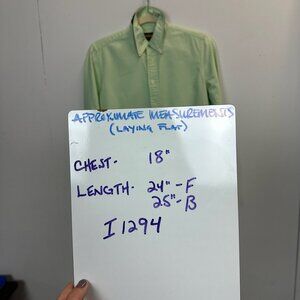 APPROXIMATE MEASUREMENTS
(LAYING FLAT)
CHEST- 18"
LENGTH- 24"-F
25"-B
I1294